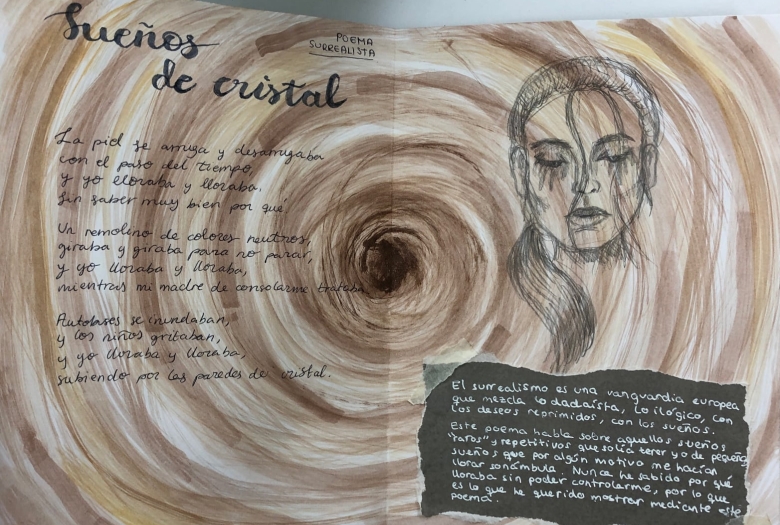 Sueños
de cristal
POEMA
SURREALISTA
La piel se arruga y desarrugaba
con el paso del tiempo
y yo lloraba y lloraba,
sin saber muy bien por qué.
Un remolino de colores neutros,
giraba y giraba para no parar,
y yo lloraba y lloraba,
mientras mi madre de consolarme trataba.
Autobuses se inundaban,
y los niños gritaban,
y yo lloraba y lloraba,
subiendo por las paredes de cristal.
El surrealismo es una vanguardia europea
que mezcla lo dadaísta, lo ilógico, con
los deseos reprimidos, con los sueños.
Este poema habla sobre aquellos sueños
"raros" y repetitivos que solía tener yo de pequeña,
sueños que por algún motivo me hacían
llorar sonámbula. Nunca he sabido por qué
lloraba sin poder controlarme, por lo que
es lo que he querido mostrar mediante este
poema.